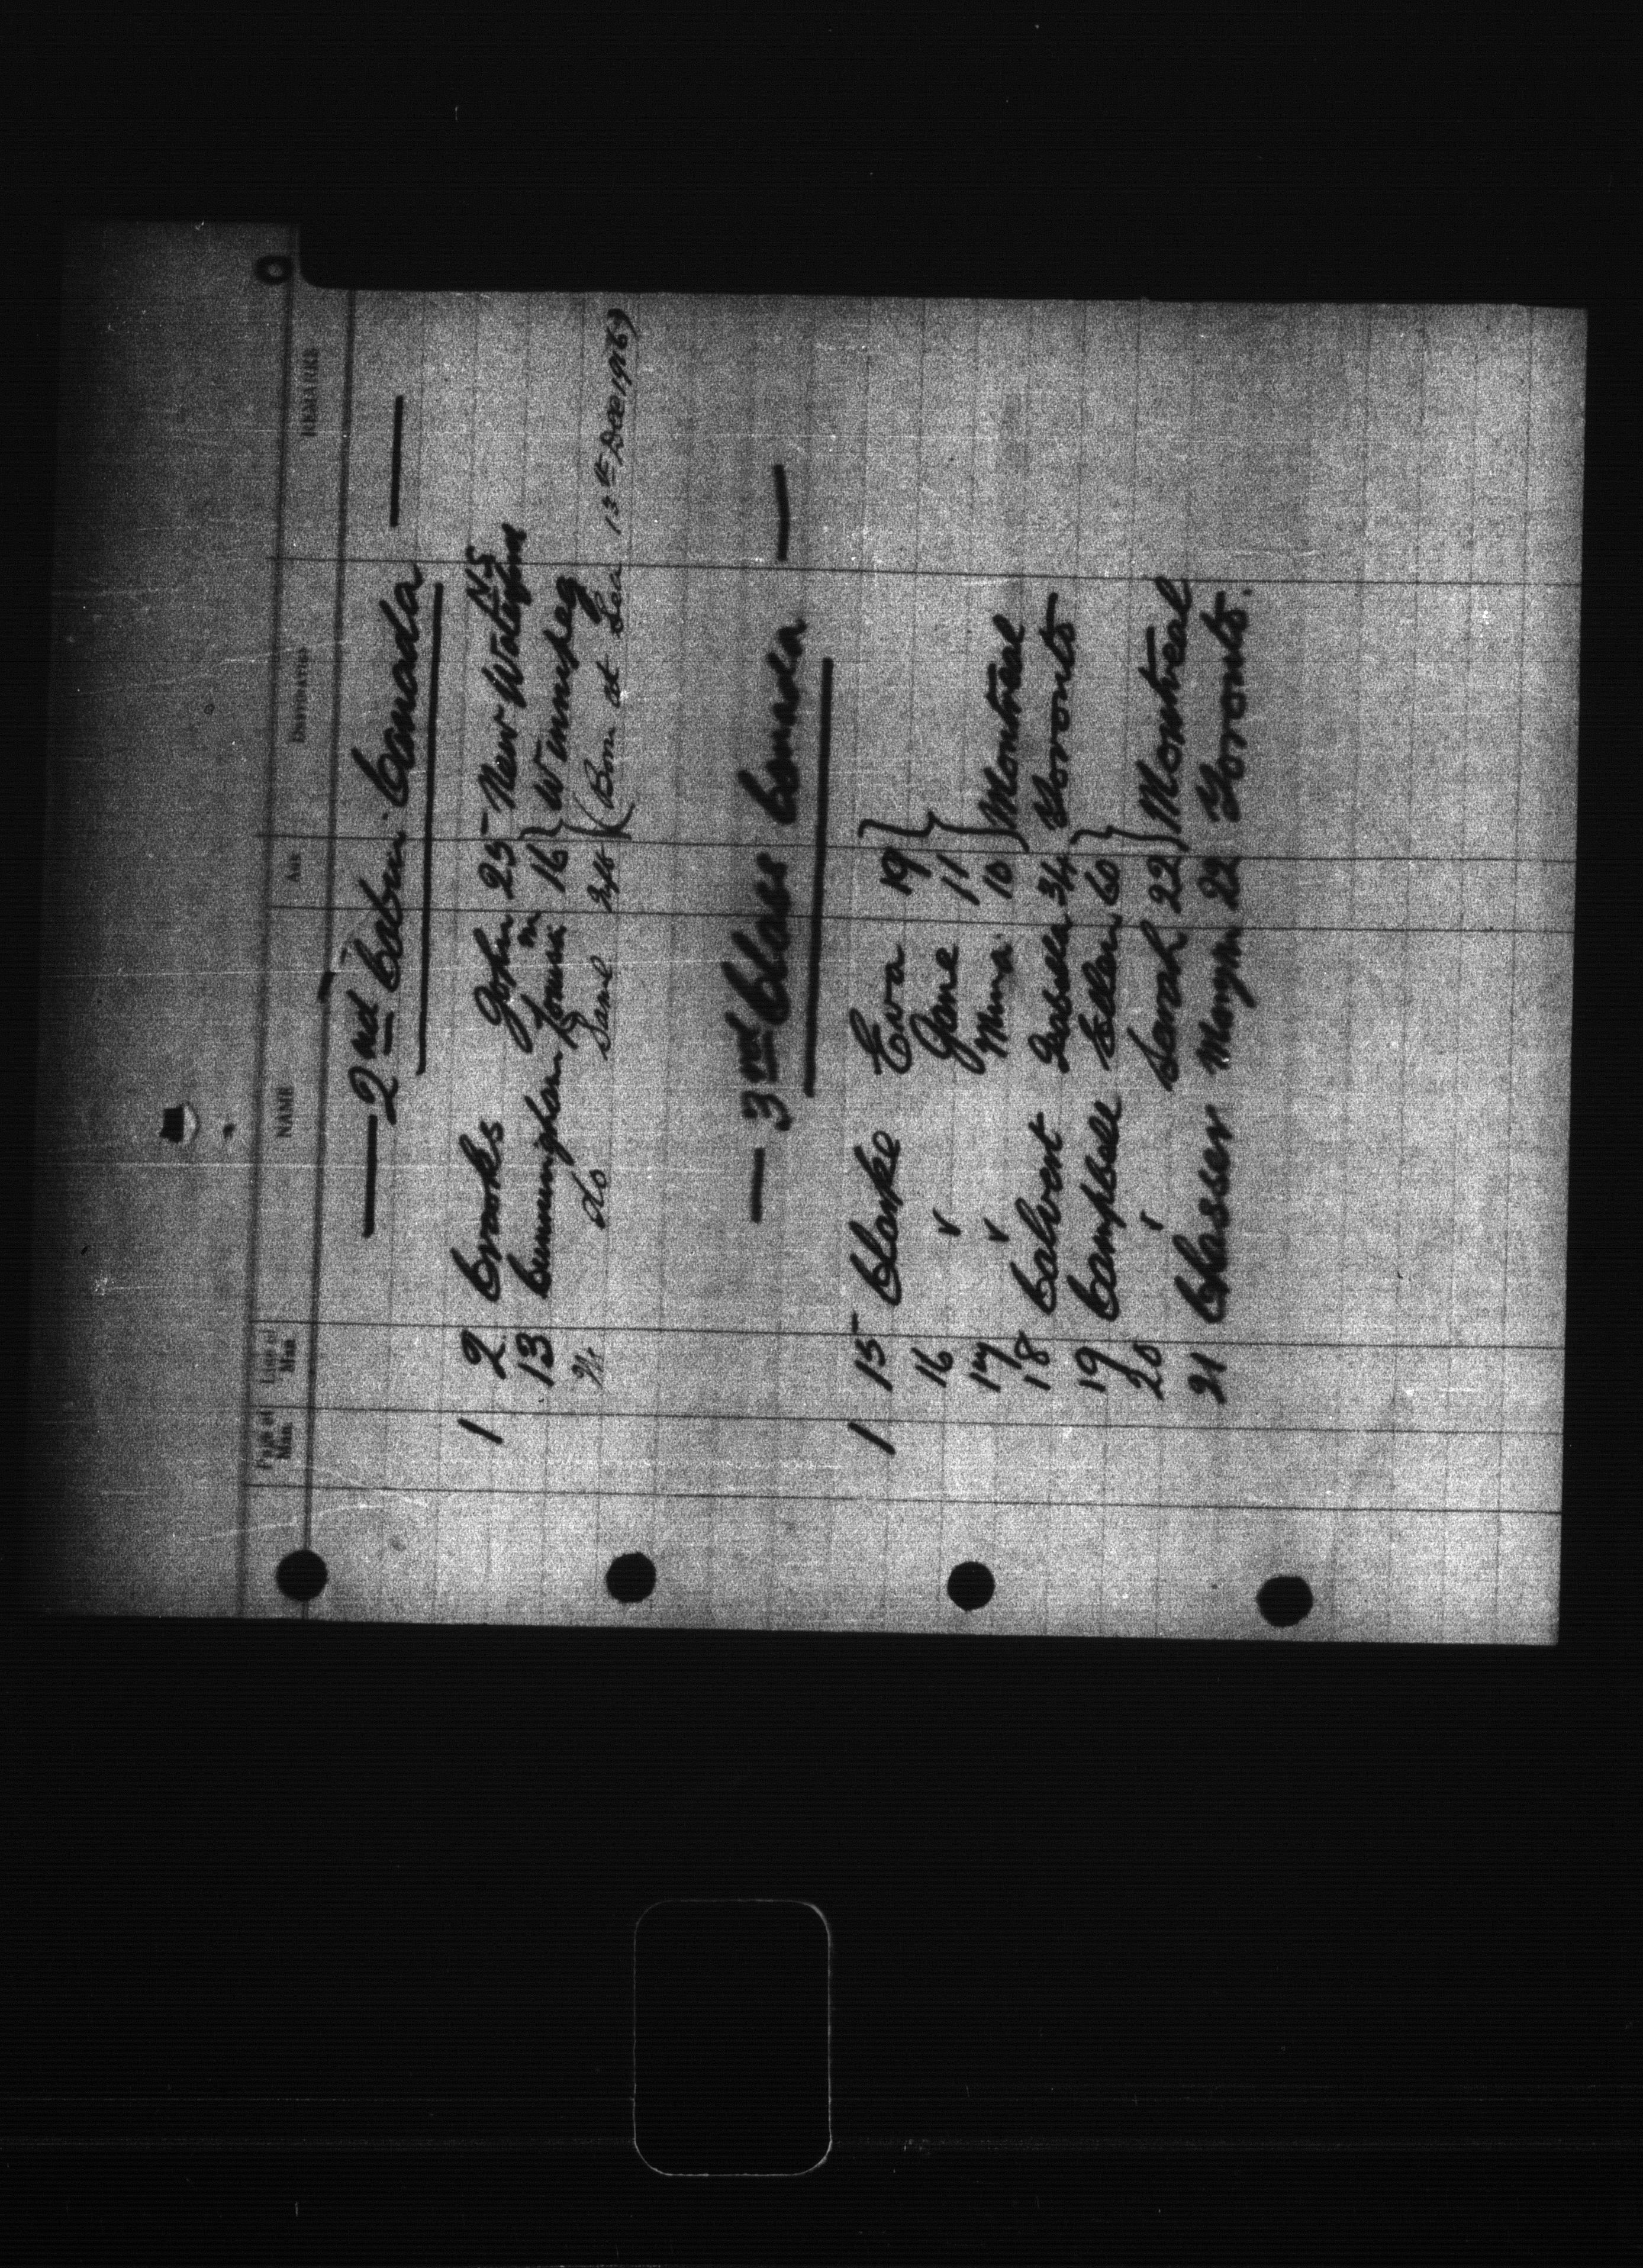 C
Page of Man. Line of Man. NAME AGE DESTINATION REMARKS
— 2nd Cabin. Canada —
1 2 Crooks John 25 New Waterford NS
13 Cunningham 16 } Winnipeg
do Inft (Born at Sea 13th Dec 1926)
— 3rd Class Canada —
1 15 Clarke Eva 19 }
16 " Jane 11 }
17 " Mina 10 } Montreal
18 Calvert Isabella 34 Toronto
19 Campbell Ellen 60 }
20 " Sarah 22 } Montreal
21 Chasser 22 Toronto.